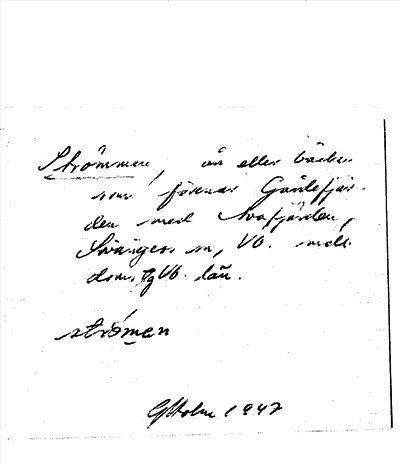 Strömmen, ån eller bäcken
som förenar Gärdefjär-
den med Avafjärden,
Lövångers sn, Vb. melle
doms. Vb. län.
strö́men
G Holm 1947